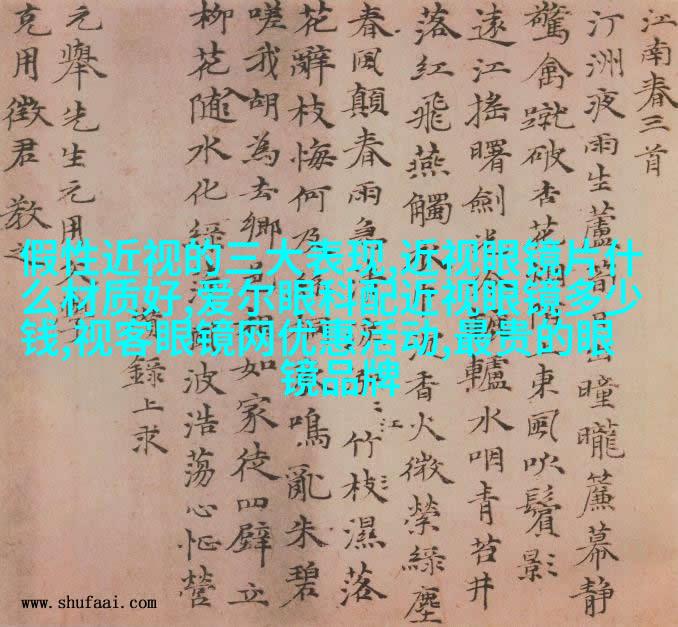 江南春三首
汀洲夜雨生蘆曈曨簾幕静
驚禽蹴破杏花東風吹鬢影
遠江摇曙劍轤水咽青苔井
落紅飛燕觸香火微縈緑塵
春風顛春雨急江竹枝濕落
花辭枝悔何及鳴亂朱碧
嗟我胡為去鄉如家徒四壁立
柳花隨水化波浩蕩心怔營
録上求
元舉先生元用
克用徵君 教之
假性近视的三大表现,近视眼镜片什
么材质好,爱尔眼科配近视眼镜多少
钱,视客眼镜网优惠活动,最贵的眼
镜品牌
www.shufaai.com